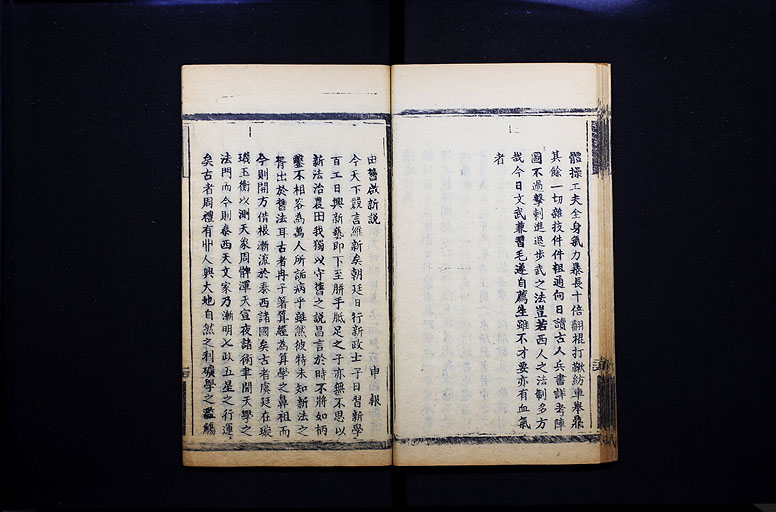 體操工夫全身氣力暴長十倍翻棍打鞦紡車舉鼎
其餘一切雜技件件粗通向日讀古人兵書詳考陣
圖不過擊刺進退步武之法豈若西人之法制多方
哉今日文武兼習毛遂自薦生雖不才要亦有血氣
者
由舊啟新說 申報
今天下競言維新矣朝廷日行新政士子日習新學
百工日興新藝即下至胼手胝足之子亦無不思以
新法治農田我獨以守舊之說昌言於時不將如枘
鑿不相容為萬人所詬病乎雖然彼特未知新法之
胥出於舊法耳古者冉子箸算經為算學之鼻祖而
今則開方借根漸流於泰西諸國矣古者虞廷在璇
璣玉衡以測天家周髀渾天宣夜諸術聿開天學之
法門而今則泰西天文家乃漸明七政五星之行運
矣古者周禮有丱人興大地自然之利礦學之濫觴